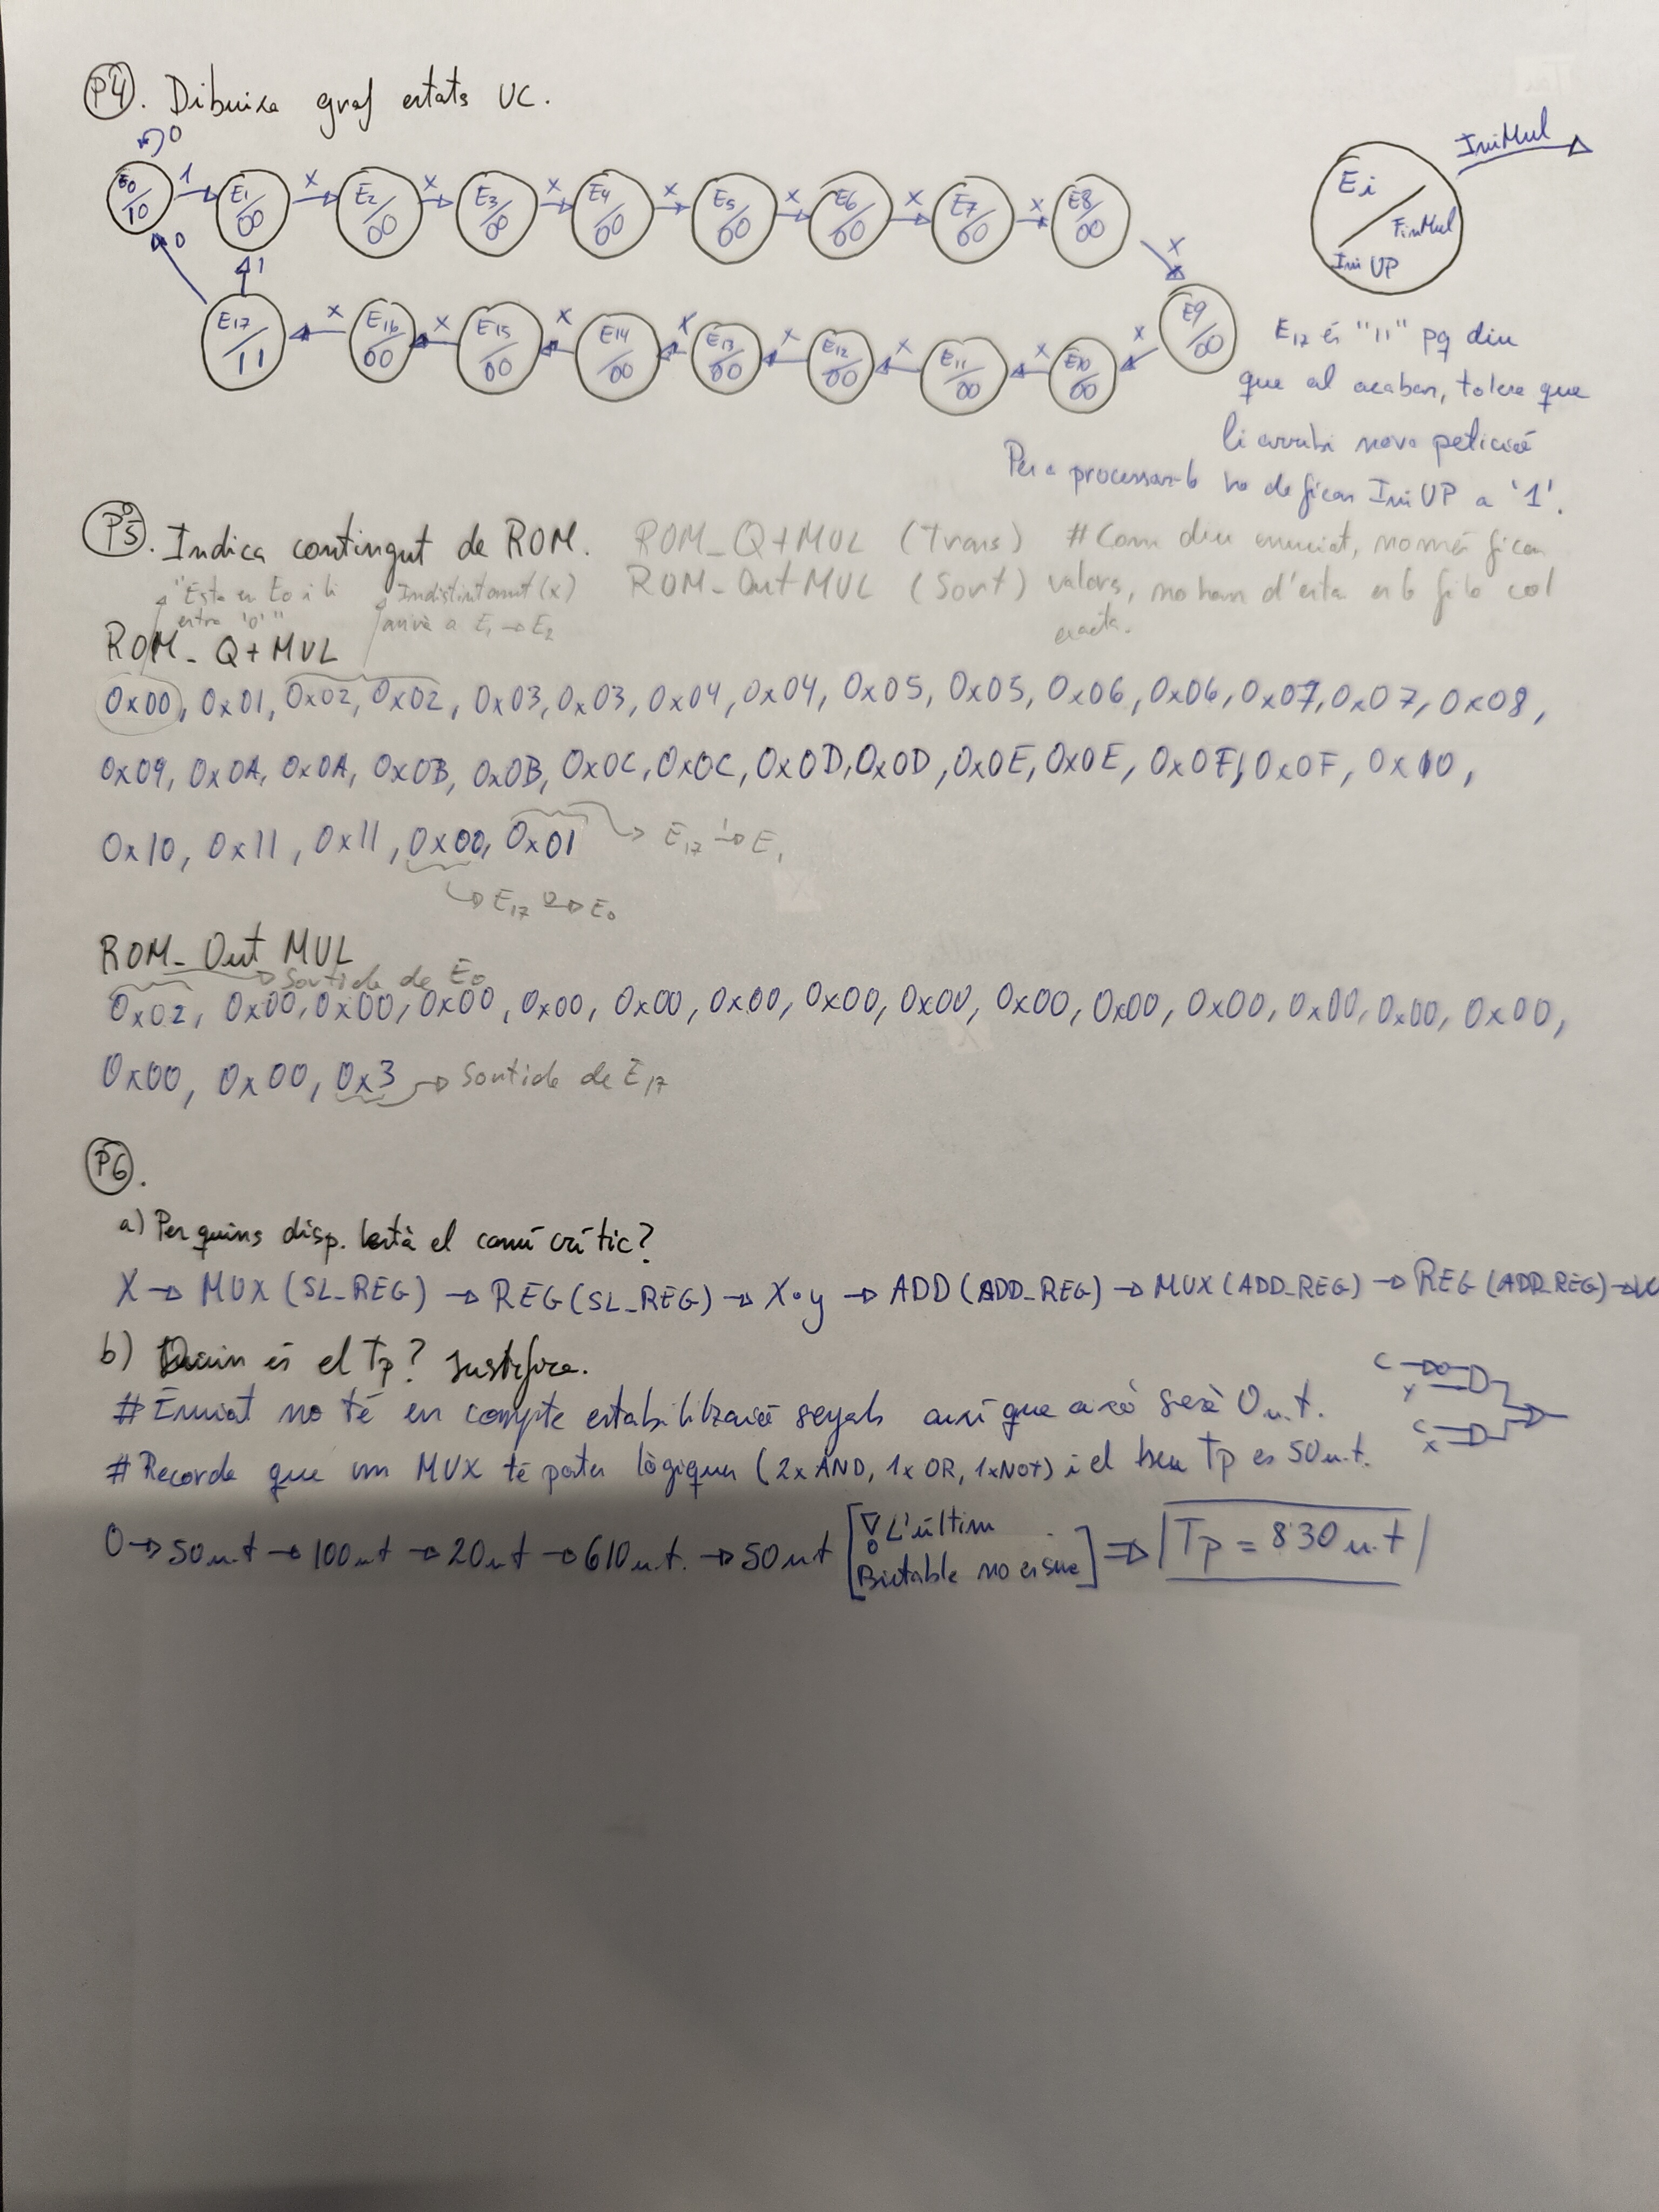 P4. Dibuixa graf estats UC.
0
E0/10 1 E1/00 x E2/00 x E3/00 x E4/00 x E5/00 x E6/00 x E7/00 x E8/00
Ei / FinMul IniUP IniMul
0 1 x
E17/11 x E16/00 x E15/00 x E14/00 x E13/00 x E12/00 x E11/00 x E10/00 x E9/00
E17 és "11" pq diu
que al acabar, tolera que
li arribi nova petició
Per a processar-la ha de ficar IniUP a '1'.
P5. Indica contingut de ROM. ROM_Q+MUL (Trans) #Com diu enunciat, només ficar
ROM_Out MUL (Sort) valors, no han d'estar en la fila col
exacta.
"Esta en E0 i li
entra '0'"
Indistintament (x)
anirà a E1 → E2
ROM_Q+MUL
0x00, 0x01, 0x02, 0x02, 0x03, 0x03, 0x04, 0x04, 0x05, 0x05, 0x06, 0x06, 0x07, 0x07, 0x08,
0x09, 0x0A, 0x0A, 0x0B, 0x0B, 0x0C, 0x0C, 0x0D, 0x0D, 0x0E, 0x0E, 0x0F, 0x0F, 0x10,
0x10, 0x11, 0x11, 0x00, 0x01 → E17 1→ E1
→ E17 0→ E0
ROM_Out MUL
→ Sortida de E0
0x02, 0x00, 0x00, 0x00, 0x00, 0x00, 0x00, 0x00, 0x00, 0x00, 0x00, 0x00, 0x00, 0x00, 0x00,
0x00, 0x00, 0x3 → Sortida de E17
P6.
a) Per quins disp. està el camí crític?
X → MUX (SL_REG) → REG (SL_REG) → X·y → ADD (ADD_REG) → MUX (ADD_REG) → REG (ADD_REG) →
b) Quin és el Tp? Justifica.
# Enuiat no té en compte estabilització senyals així que això serà 0u.t.
# Recorda que un MUX té portes lògiques (2xAND, 1xOR, 1xNOT) i el seu Tp es 50u.t.
C
y
C
x
0 → 50u.t → 100u.t → 20u.t → 610u.t. → 50u.t [L'últim
Biestable no es suma] ⇒ Tp = 830 u.t